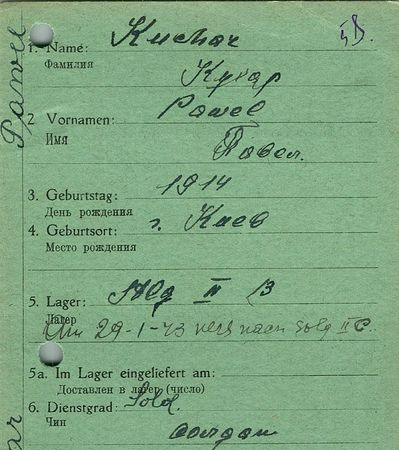 II B.
Pawel
1. Name: Kuchar
Фамилия
Кухар
2. Vornamen: Pawel
Имя
Павел.
3. Geburtstag: 1914
День рождения
4. Geburtsort: г. Киев
Место рождения
5. Lager: Stlg II B
Лагер
Am 29-1-43 vers nach Stlg II C.
5a. Im Lager eingeliefert am:
Доставлен в лагер (число)
6. Dienstgrad: Sold.
Чин
солдат
ar